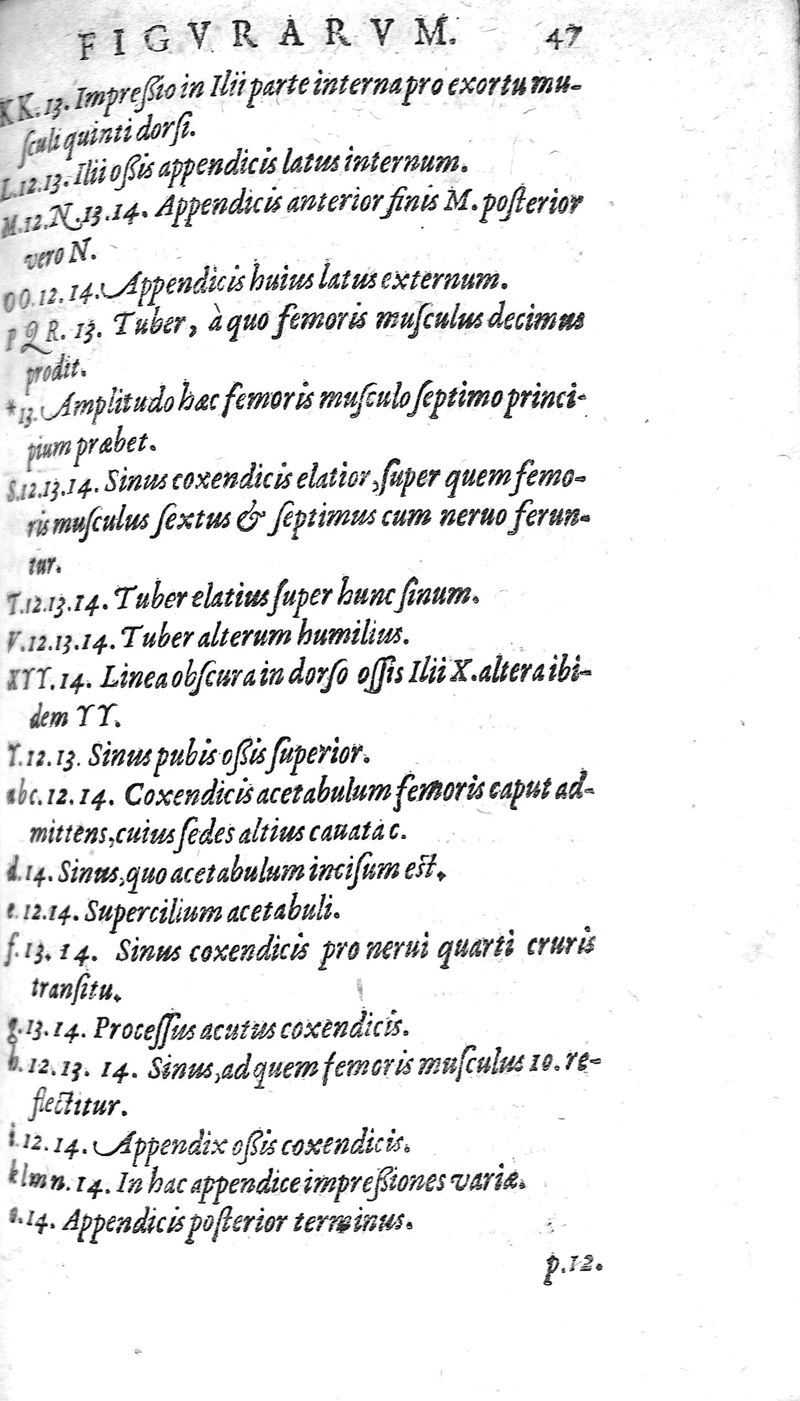 FIGVRARVM. 47
KK.13. Impreßio in Ilii parte interna pro exortu mu-
ſculi quinti dorſi.
L.12.13. Ilii oßis appendicis latus internum.
M.12.N.13.14. Appendicis anterior finis M. poſterior
vero N.
OO.12.14. Appendicis huius latus externum.
P Q R. 13. Tuber, à quo femoris muſculus decimus
prodit.
*13. Amplitudo hæc femoris muſculo ſeptimo princi-
pium præbet.
S.12.13.14. Sinus coxendicis elatior, ſuper quem femo-
ris muſculus ſextus & ſeptimus cum neruo ferun-
tur.
T.12.13.14. Tuber elatius ſuper hunc ſinum.
V.12.13.14. Tuber alterum humilius.
XYY.14. Linea obſcura in dorſo oſſis Ilii X. altera ibi-
dem YY.
Y.12.13. Sinus pubis oßis ſuperior.
abc.12.14. Coxendicis acetabulum femoris caput ad-
mittens, cuius ſedes altius cauata c.
d.14. Sinus, quo acetabulum inciſum est.
e.12.14. Supercilium acetabuli.
f.13.14. Sinus coxendicis pro nerui quarti cruris
tranſitu.
g.13.14. Proceſſus acutus coxendicis.
h.12.13.14. Sinus, ad quem femoris muſculus 10. re-
flectitur.
i.12.14. Appendix oßis coxendicis.
klmn.14. In hac appendice impreßiones variæ.
o.14. Appendicis poſterior terminus.
p.12.